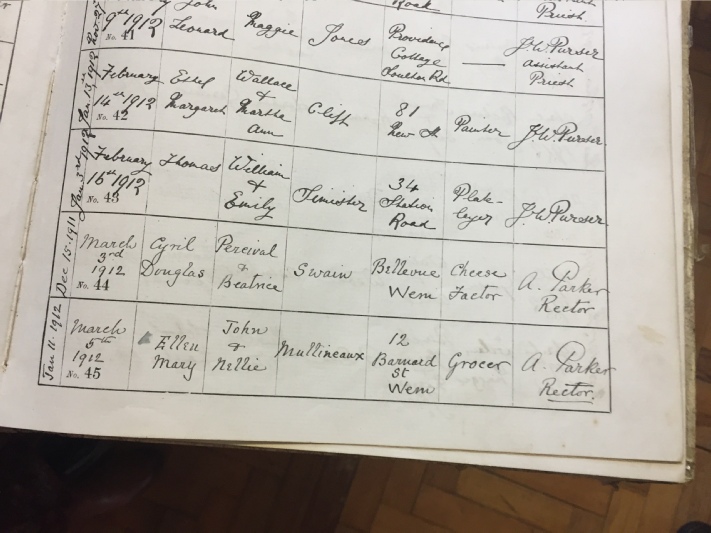 John
9th 1912 Leonard Maggie Jones Providence J.W. Purser
No. 41 Cottage Assistant
Soulton Rd Priest
February Ethel Wallace Clift 81 Painter J.W. Purser
14th 1912 Margaret & New St
No. 42 Martha
Ann
February Thomas William 34 Plate- J.W. Purser
16th 1912 & Station layer
No. 43 Emily Road
Dec 15. 1911 March Cyril Percival Swain Bellevue Cheese A. Parker
3rd Douglas & Wem Factor Rector
1912 Beatrice
No. 44
Jan 11. 1912 March Ellen John Mullineaux 12 Grocer A. Parker
5th Mary & Barnard Rector.
1912 Nellie St
No. 45 Wem